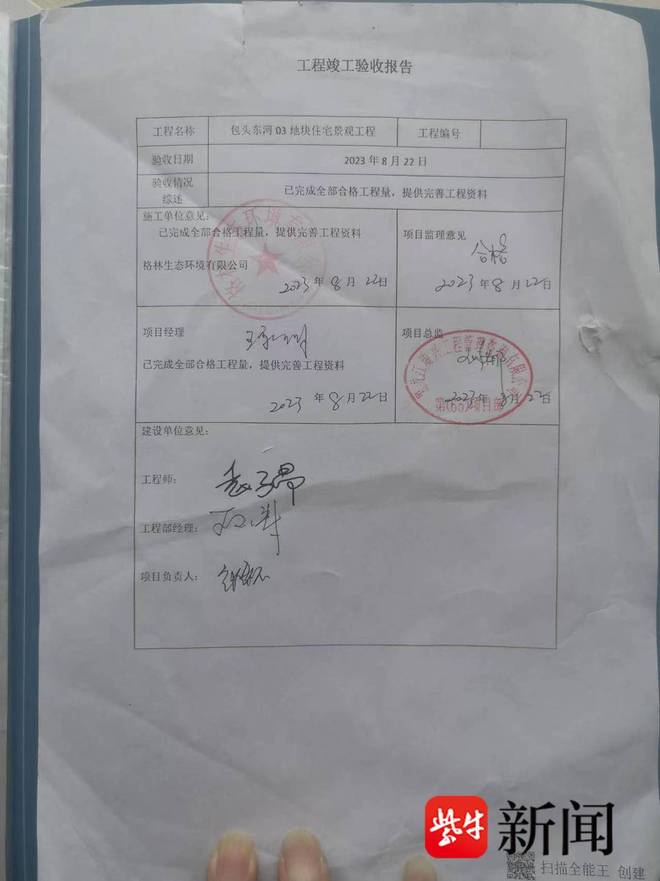 工程竣工验收报告
工程名称 包头东河03地块住宅景观工程 工程编号
验收日期 2023年8月22日
验收情况综述 已完成全部合格工程量，提供完善工程资料
施工单位意见：
已完成全部合格工程量，提供完善工程资料
格林生态环境有限公司
2023年8月22日
项目监理意见
合格
2023年8月22日
项目经理
已完成全部合格工程量，提供完善工程资料
2023年8月22日
项目总监
2023年8月22日
建设单位意见：
工程师：
工程部经理：
项目负责人：
紫牛新闻
扫描全能王 创建